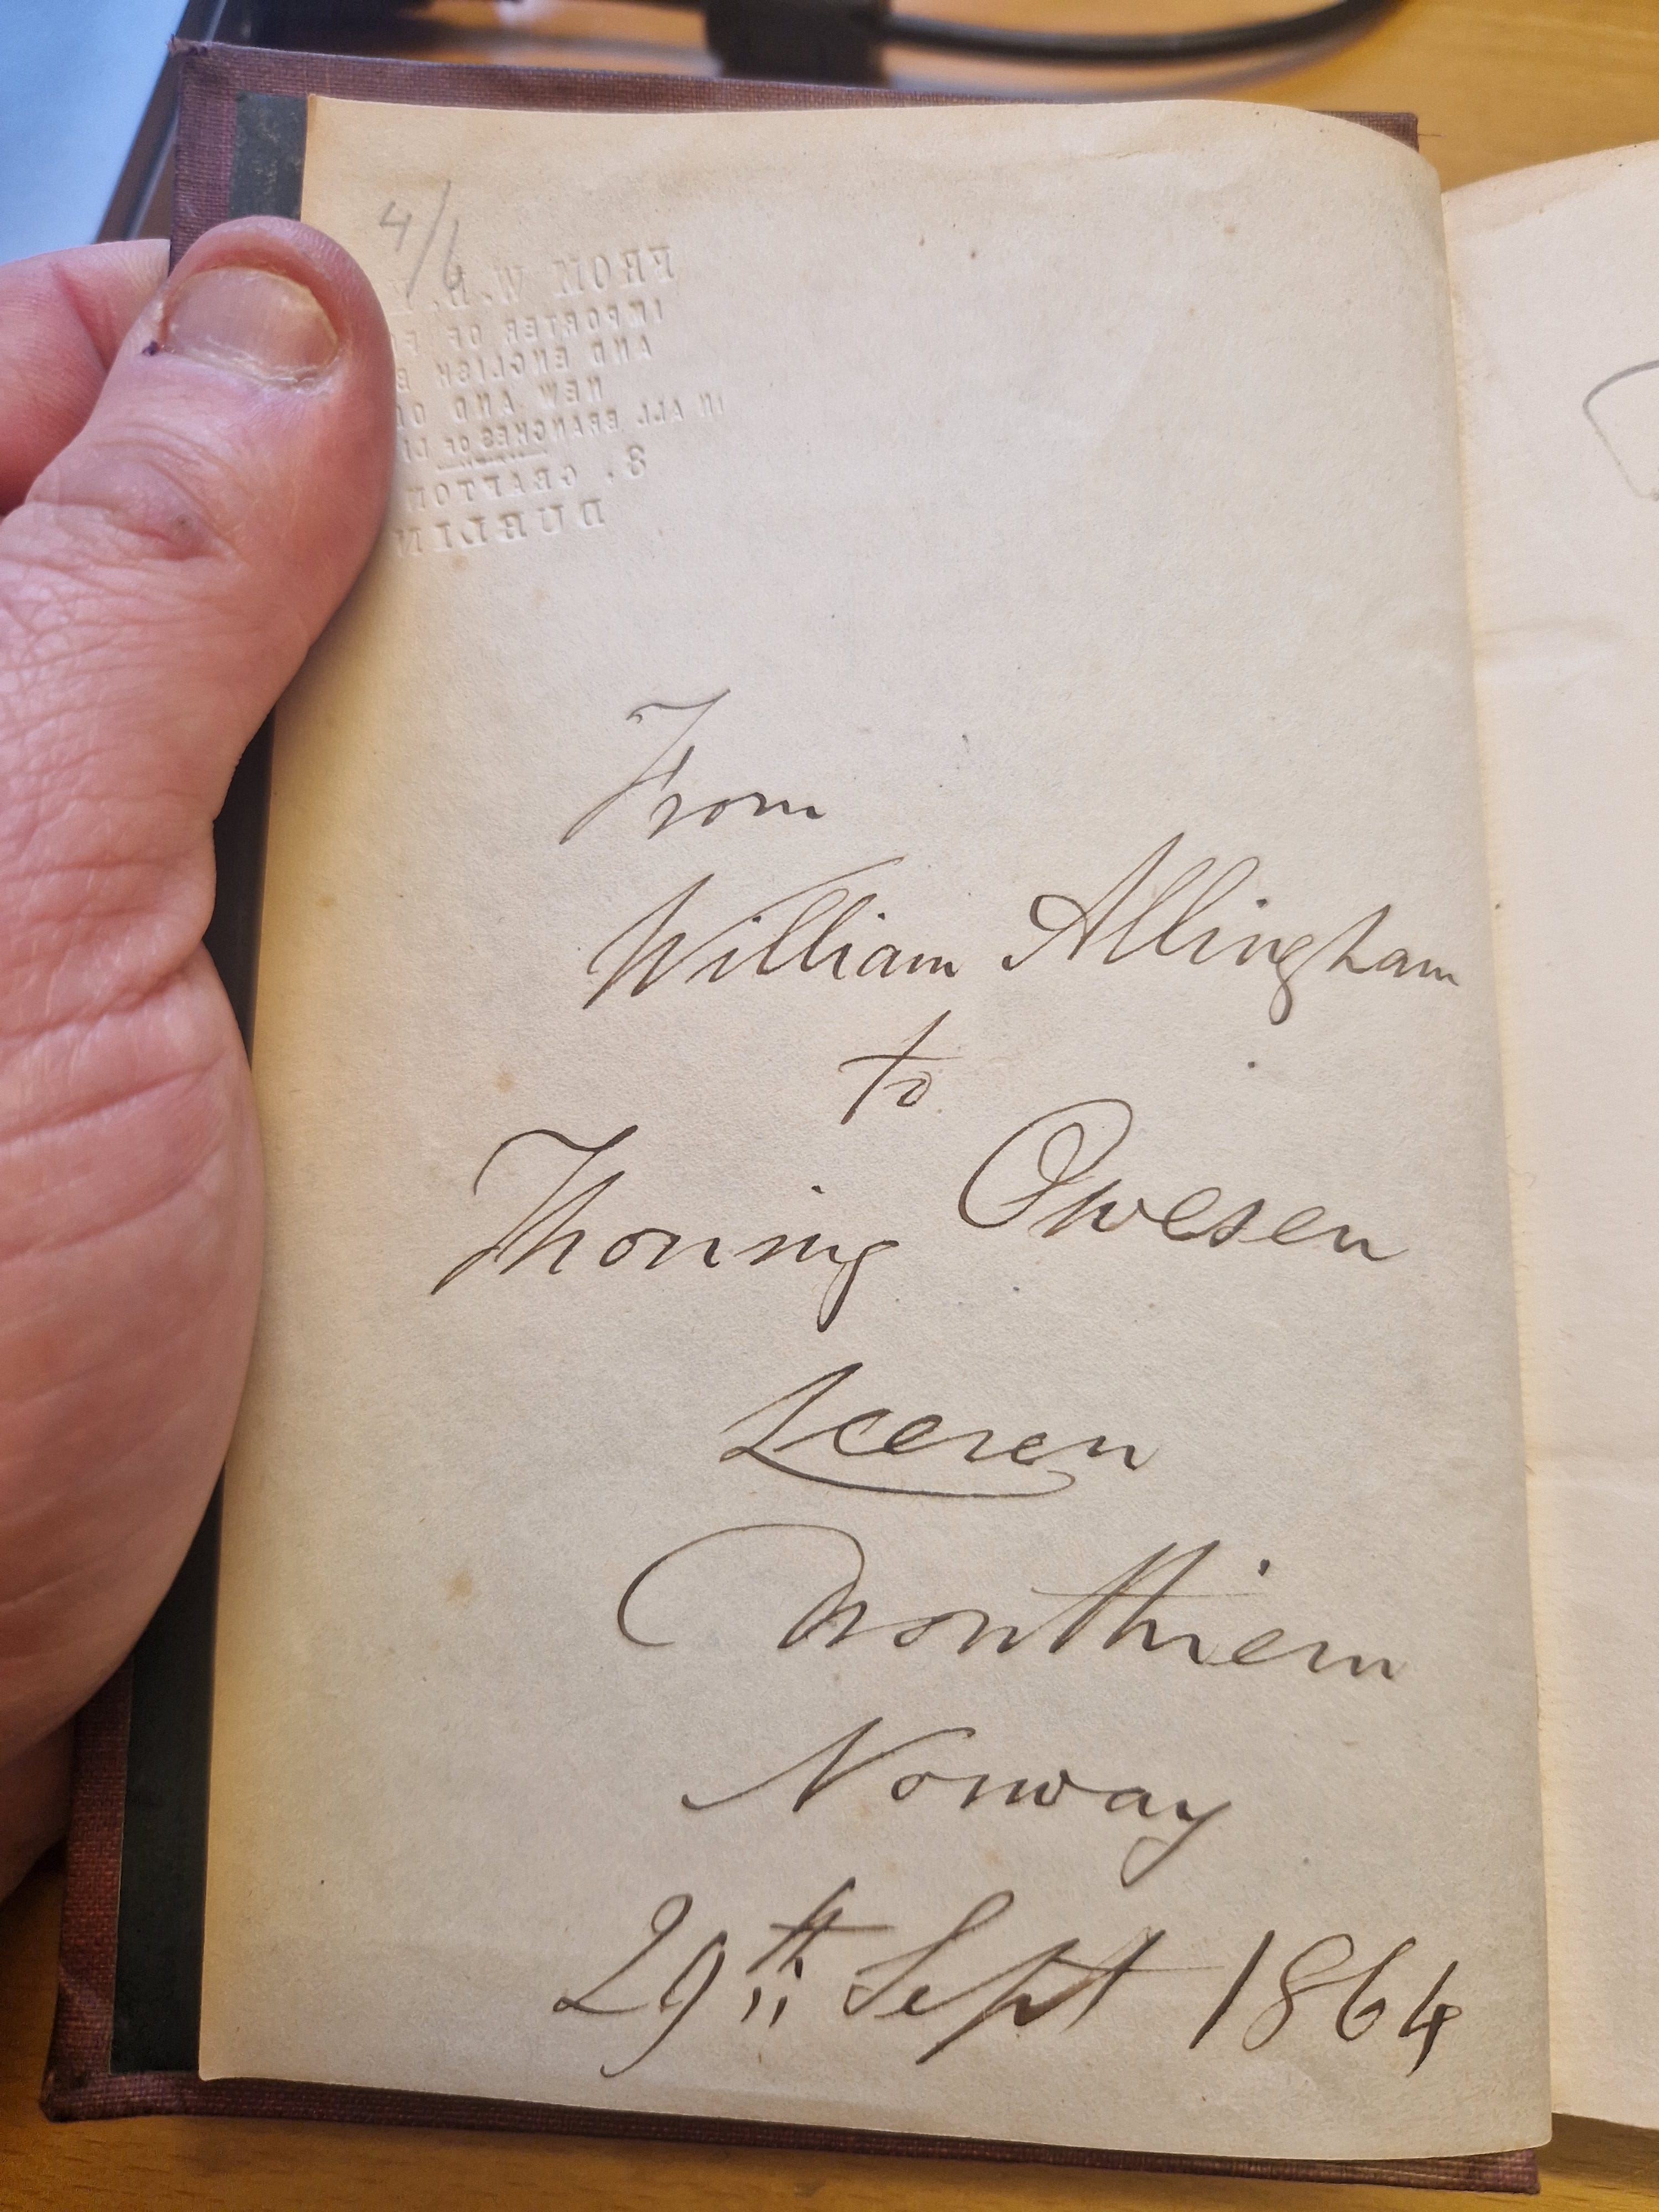 4/6
FROM W.B.
IMPORTER OF
AND ENGLISH
NEW AND
IN ALL BRANCHES OF
8, GRAFTON
DUBLIN
From
William Allingham
to
Thoning Owesen
Leeren
Dronthiem
Norway
29th Sept 1864